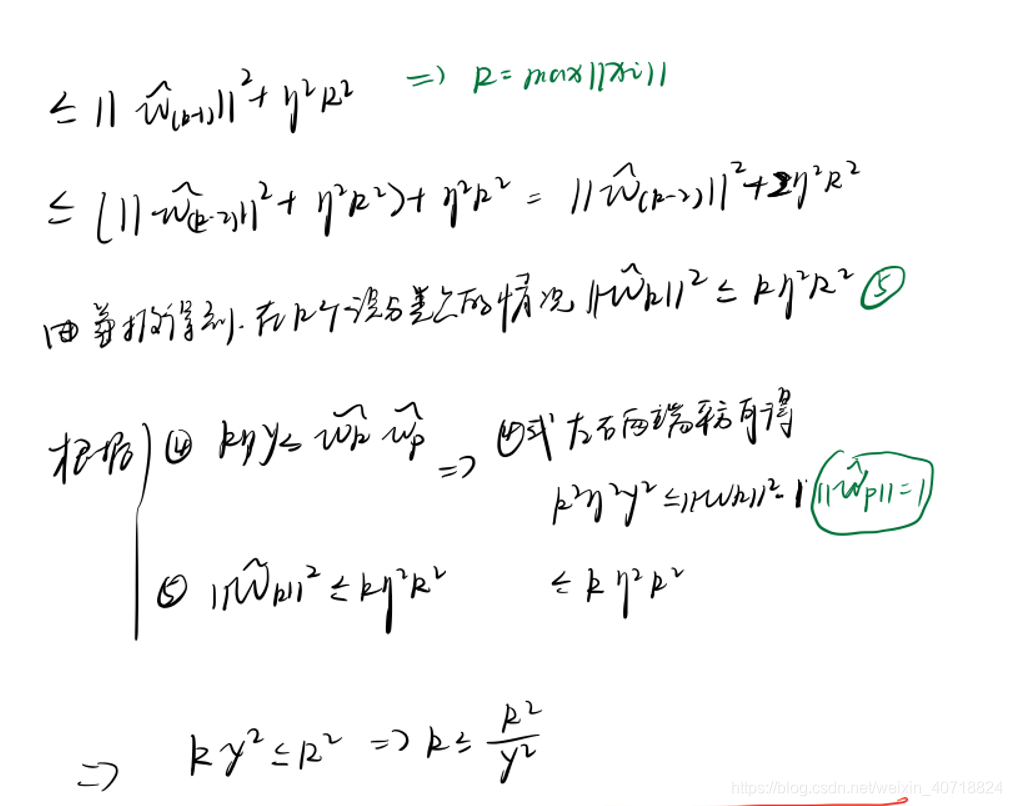 ≤ || ŵ(k-1)||² + η²R² => R = max||xi||
≤ [|| ŵ(k-2)||² + η²R²) + η²R² = ||ŵ(k-2)||² + 2η²R²
由等投得到.在k个误分类点的情况 ||ŵk||² ≤ kη²R² ⑤
根据 ④ kηγ≤ ŵk ŵp => ④式左右两端平方可得
k²η²γ² ≤ ||wk||²·1 ||ŵp||=1
⑤ ||ŵk||² ≤ kη²R² ≤ kη²R²
=> kγ² ≤ R² => k ≤ R²/γ²
https://blog.csdn.net/weixin_40718824